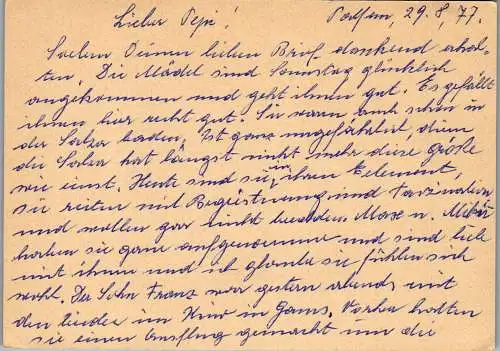 Lieber Pepi! Palfau, 29.8.77.
Soeben Deinen lieben Brief dankend erhal-
ten. Die Mädel sind Samstag glücklich
angekommen und geht ihnen gut. Es gefällt
ihnen hier recht gut. Sie waren auch schon in
der Salza baden, Ist ganz ungefährlich, denn
die Salza hat längst nicht mehr diese Größe
wie einst. Heute sind sie in ihren Element,
sie reiten mit Begeisterung und
und wollen gar nicht Max u.
haben sie gerne aufgenommen und sind lieb
mit ihnen und ich glaube sie fühlen sich
wohl. Der Sohn Franz war gestern abends mit
den beiden im Kino in Gams. Vorher hatten
sie einen Ausflug gemacht um die